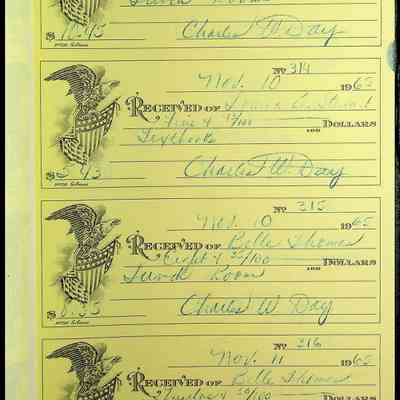 Lunch Room
$ 10.45 Charles W. Day
No 314
Nov. 10 1965
RECEIVED OF
Five & 43/100 DOLLARS
Textbooks
$ 5.43 Charles W. Day
No 315
Nov. 10 1965
RECEIVED OF Belle Thomas
Eight & 35/100 DOLLARS
Lunch Room
$ 8.35 Charles W. Day
No 316
Nov. 11 1965
RECEIVED OF Belle Thomas
DOLLARS